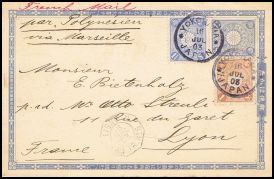 French Mail
par Polynésien
via Marseille
YOKOHAMA
16
JUL
03
JAPAN
16
JUL
03
JAPAN
Monsieur
E. Bietenholz
p.ad. Mr. Otto Streuli
11 Rue du Garet
Lyon
France